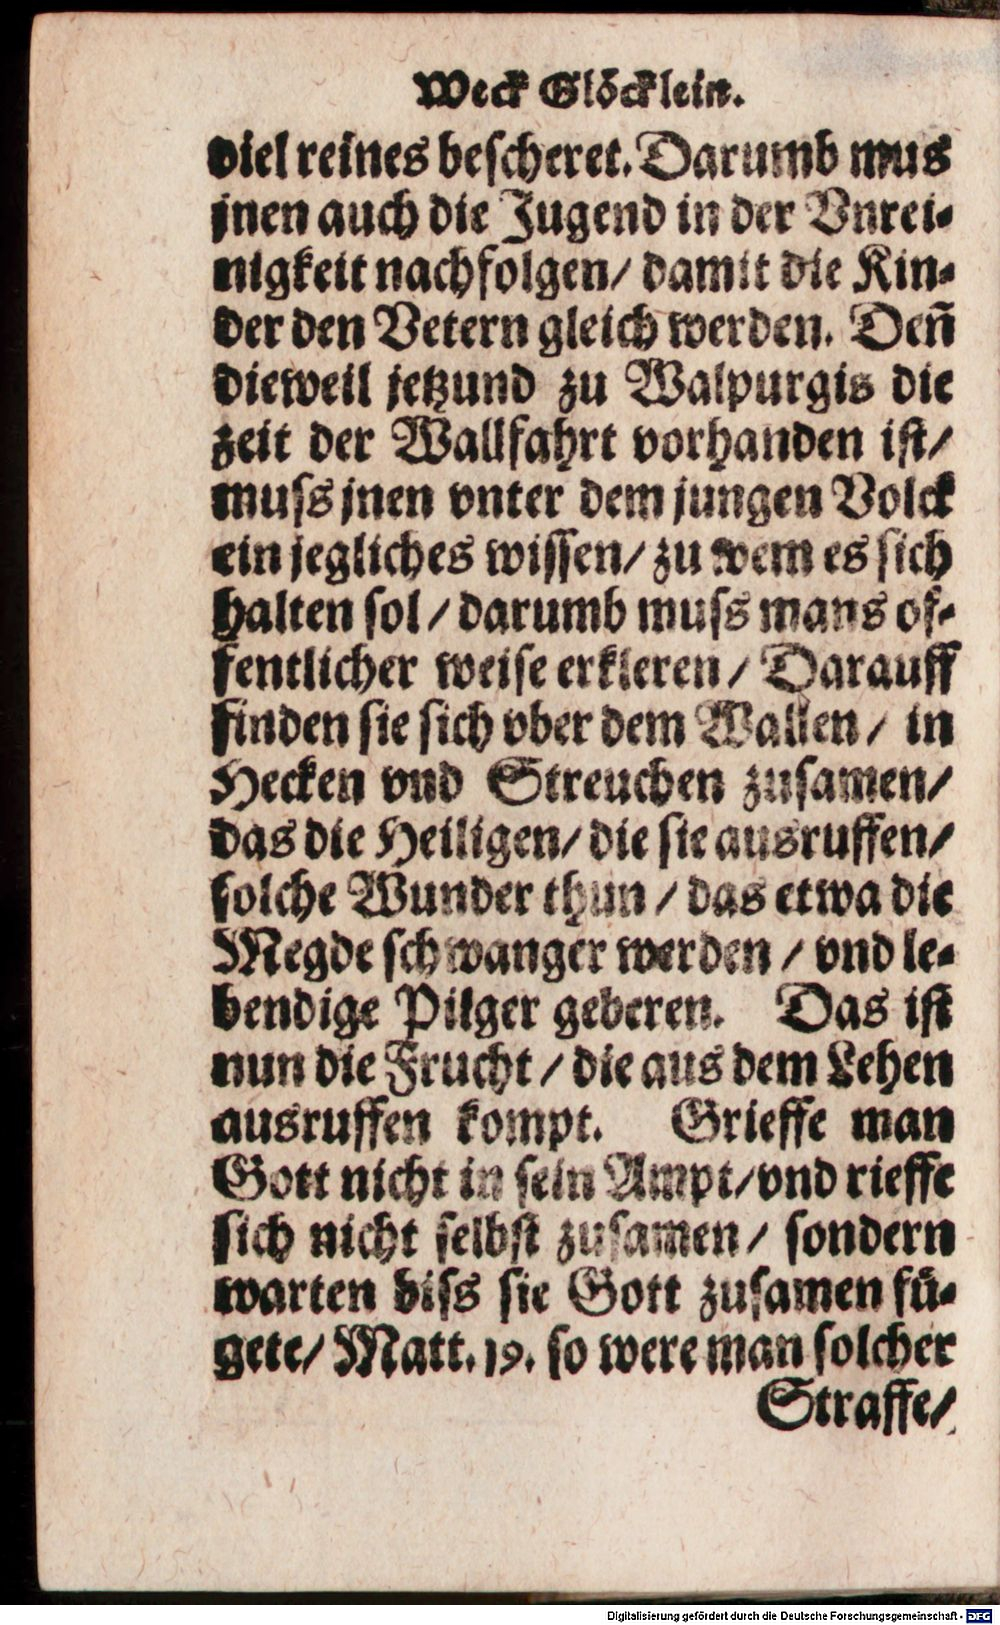 Weck Glöcklein.
viel reines bescheret. Darumb mus
jnen auch die Jugend in der Vnrei-
nigkeit nachfolgen/ damit die Kin-
der den Vetern gleich werden. Deñ
dieweil jetzund zu Walpurgis die
zeit der Wallfahrt vorhanden ist/
muss jnen vnter dem jungen Volck
ein jegliches wissen/ zu wem es sich
halten sol/ darumb muss mans of-
fentlicher weise erkleren/ Darauff
finden sie sich vber dem Wallen/ in
Hecken vnd Streuchen zusamen/
das die Heiligen/ die sie ausruffen/
solche Wunder thun/ das etwa die
Megde schwanger werden/ vnd le-
bendige Pilger geberen. Das ist
nun die Frucht/ die aus dem Lehen
ausruffen kompt. Grieffe man
Gott nicht in sein Ampt/ vnd rieffe
sich nicht selbst zusamen/ sondern
warten biss sie Gott zusamen fü-
gete/ Matt. 19. so were man solcher
Straffe/
Digitalisierung gefördert durch die Deutsche Forschungsgemeinschaft - DFG